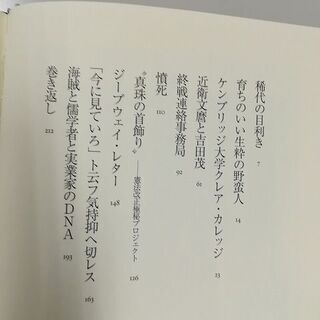 稀代の目利き 7
育ちのいい生粋の野蛮人 14
ケンブリッジ大学クレア・カレッジ 23
近衛文麿と吉田茂 61
終戦連絡事務局 92
憤死 110
“真珠の首飾り” 憲法改正極秘プロジェクト 126
ジープウェイ・レター 148
「今に見ていろ」ト云フ気持抑ヘ切レス 163
海賊と儒学者と実業家のDNA 193
巻き返し 212